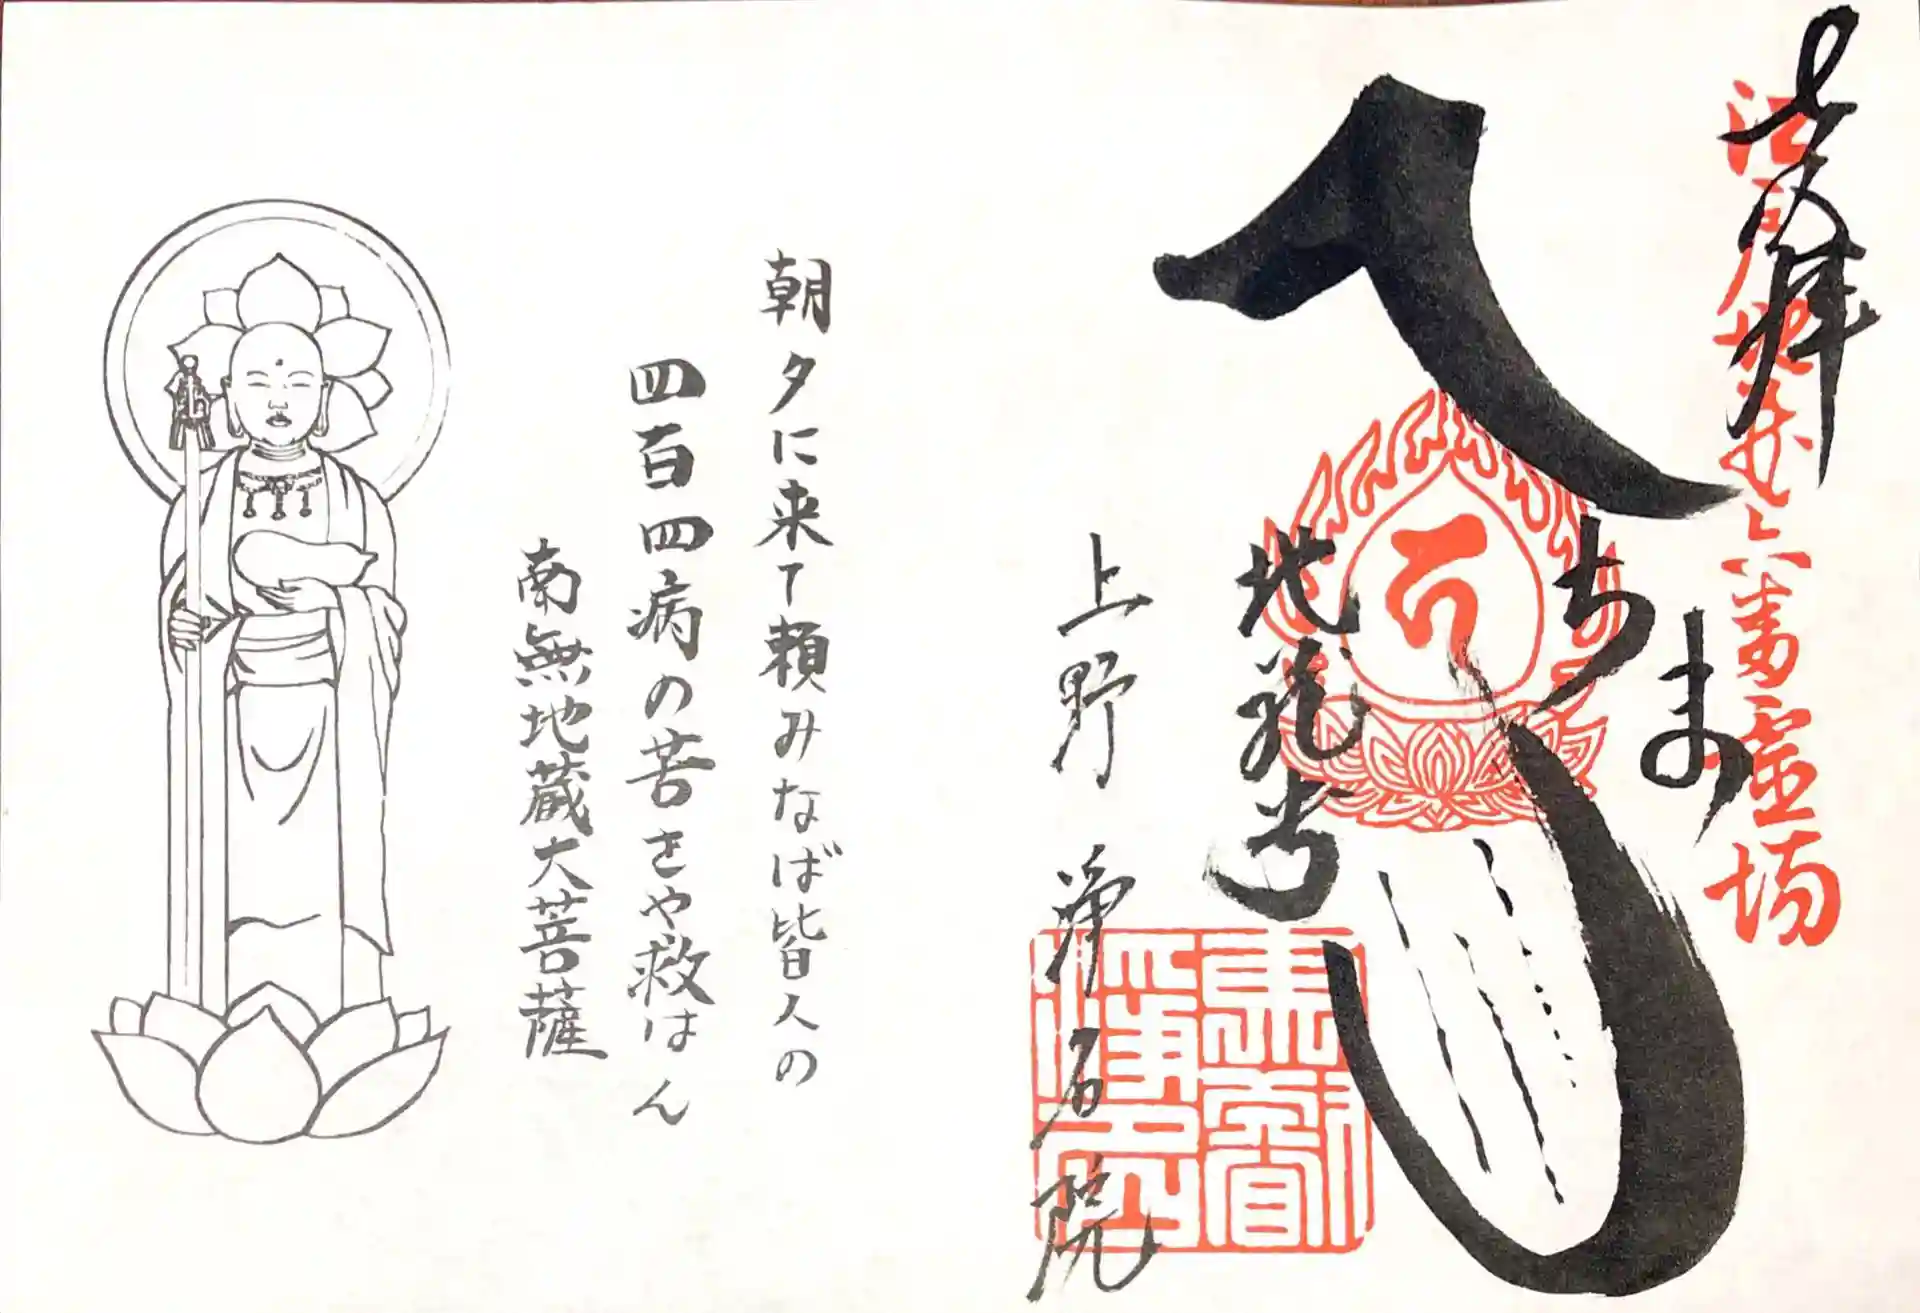 奉拝
江戸地蔵六番霊場
へちま
地蔵尊
上野 浄名院
朝夕に来て頼みなば皆人の
四百四病の苦をや救はん
南無地蔵大菩薩